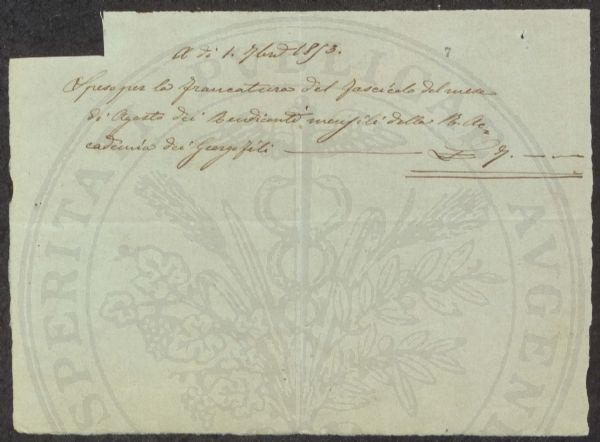 A di 1. 7bre 1853.
7
Spese per la francatura del fascicolo del mese
di Agosto dei Rendiconti mensili della R. Ac=
cademia dei Georgofili
PUBLICA
PROSPERITATI AUGENDAE